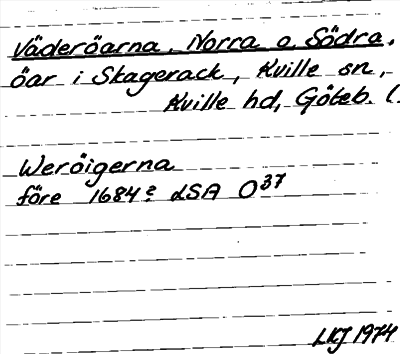 Väderöarna, Norra o. Södra,
öar i Skagerack, Kville sn,
Kville hd, Göteb. l.
Weröigerna
före 1684? LSA O37
LKJ 1974